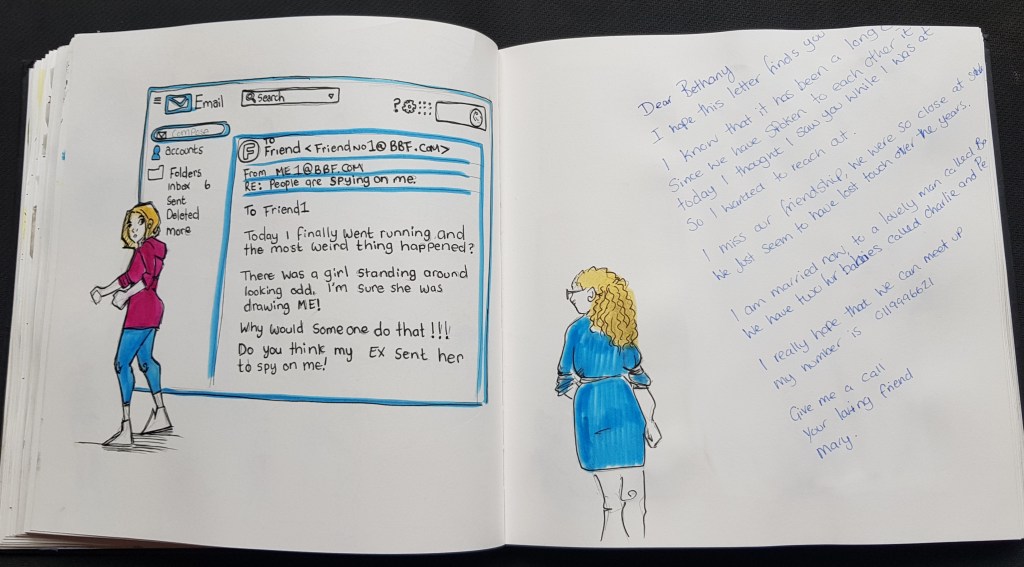 Email
Search
?
Compose
accounts
Folders
Inbox 6
Sent
Deleted
more
F
TO
Friend <FriendNo1@BBF.COM>
From ME1@BBF.COM
RE: People are spying on me.
To Friend1
Today I finally went running and
the most weird thing happened?
There was a girl standing around
looking odd, I'm sure she was
drawing ME!
Why would someone do that !!!!
Do you think my EX sent her
to spy on me!
Dear Bethany
I hope this letter finds you
I know that it has been a long
Since we have spoken to each other it
today I thought I saw you while I was at
So I wanted to reach out.
I miss our friendship, we were so close at
We just seem to have lost touch over the years.
I am married now to a lovely man called
We have two babies called charlie and
I really hope that we can meet up
my number is 0119496621
Give me a call
your friend
Mary.